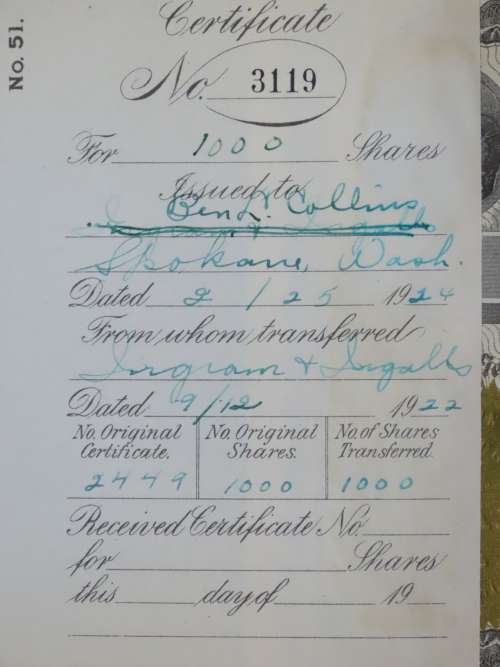 No. 51.
Certificate
No. 3119
For 1000 Shares
Issued to
Ben L. Collins
Ingram & Ingalls
Spokane, Wash.
Dated 2/25 1924
From whom transferred
Ingram & Ingalls
Dated 9/12 1922
No. Original Certificate. No. Original Shares. No. of Shares Transferred.
2449 1000 1000
Received Certificate No.
for Shares
this day of 19